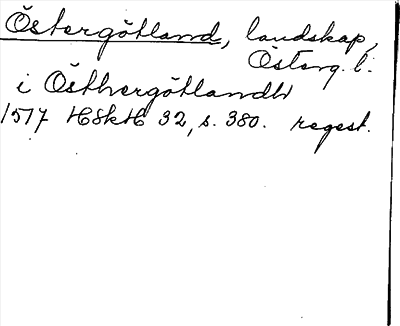 Östergötland, landskap,
Österg. l.
i Östhergötlandh
1517 HSkH 32, s. 380. regest.